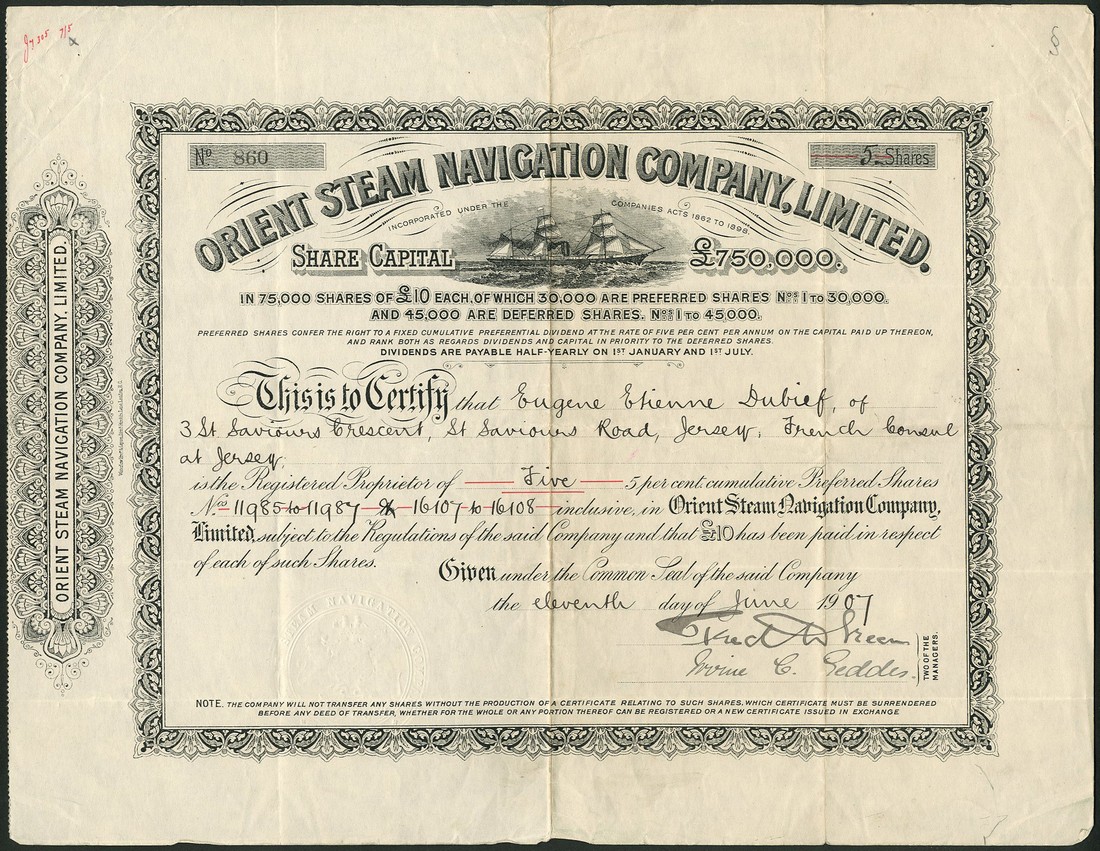 Jy 305 7/5
Nº 860
5 Shares
ORIENT STEAM NAVIGATION COMPANY, LIMITED.
INCORPORATED UNDER THE COMPANIES ACTS 1862 TO 1898.
SHARE CAPITAL £750,000.
IN 75,000 SHARES OF £10 EACH, OF WHICH 30,000 ARE PREFERRED SHARES Nos. 1 TO 30,000.
AND 45,000 ARE DEFERRED SHARES. Nos. 1 TO 45,000.
PREFERRED SHARES CONFER THE RIGHT TO A FIXED CUMULATIVE PREFERENTIAL DIVIDEND AT THE RATE OF FIVE PER CENT PER ANNUM ON THE CAPITAL PAID UP THEREON,
AND RANK BOTH AS REGARDS DIVIDENDS AND CAPITAL IN PRIORITY TO THE DEFERRED SHARES.
DIVIDENDS ARE PAYABLE HALF-YEARLY ON 1ST JANUARY AND 1ST JULY.
This is to Certify that Eugene Etienne Dubief, of
3 St Saviours Crescent, St Saviours Road, Jersey, French Consul
at Jersey,
is the Registered Proprietor of Five 5 per cent. cumulative Preferred Shares
Nos 11985 to 11987 & 16107 to 16108 inclusive, in Orient Steam Navigation Company,
Limited, subject to the Regulations of the said Company and that £10 has been paid in respect
of each of such Shares.
Given under the Common Seal of the said Company
the eleventh day of June 1907
Fred Green
Irvine C. Geddes.
TWO OF THE MANAGERS.
NOTE. THE COMPANY WILL NOT TRANSFER ANY SHARES WITHOUT THE PRODUCTION OF A CERTIFICATE RELATING TO SUCH SHARES, WHICH CERTIFICATE MUST BE SURRENDERED
BEFORE ANY DEED OF TRANSFER, WHETHER FOR THE WHOLE OR ANY PORTION THEREOF CAN BE REGISTERED OR A NEW CERTIFICATE ISSUED IN EXCHANGE.
ORIENT STEAM NAVIGATION COMPANY, LIMITED.